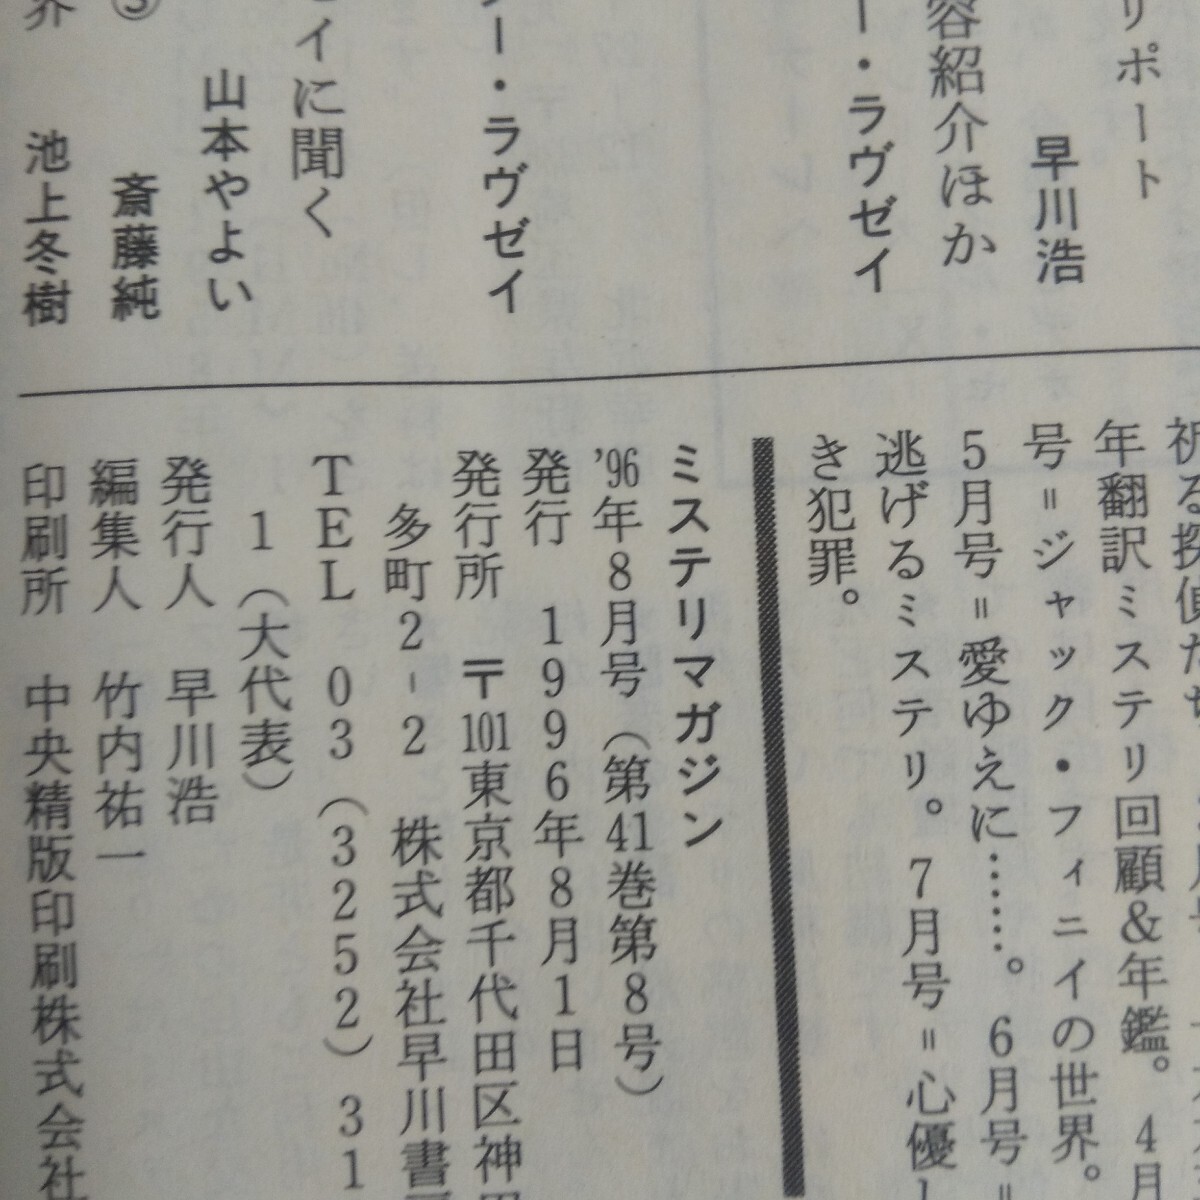 リポート
早川浩
容紹介ほか
ー・ラヴゼイ
ー・ラヴゼイ
イに聞く
山本やよい
③ 斎藤純
界 池上冬樹
祈る探偵たち
年翻訳ミステリ回顧&年鑑。 4月
号=ジャック・フィニイの世界。
5月号=愛ゆえに……。 6月号=
逃げるミステリ。 7月号=心優し
き犯罪。
ミステリマガジン
’96年8月号(第41巻第8号)
発行 1996年8月1日
発行所 〒101東京都千代田区神田
多町2-2 株式会社早川書房
TEL 03(3252)31
1(大代表)
発行人 早川浩
編集人 竹内祐一
印刷所 中央精版印刷株式会社